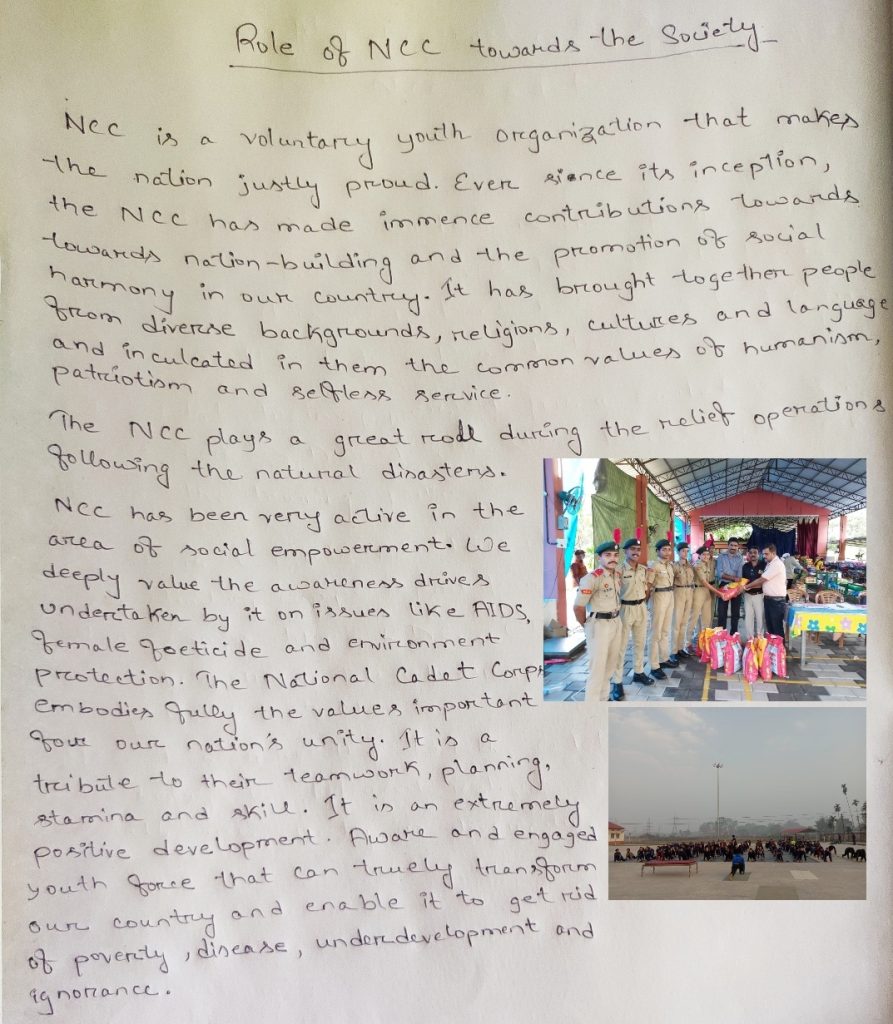 Role of NCC towards the Society
NCC is a voluntary youth organization that makes
the nation justly proud. Ever sience its inception,
the NCC has made immence contributions towards
towards nation-building and the promotion of social
harmony in our country. It has brought together people
from diverse backgrounds, religions, cultures and language
and inculcated in them the common values of humanism,
patriotism and selfless service.
The NCC plays a great role during the relief operations
following the natural disasters.
NCC has been very active in the
area of social empowerment. We
deeply value the awareness drives
undertaken by it on issues like AIDS,
female foeticide and environment
protection. The National Cadet Corps
embodies fully the values important
four our nation's unity. It is a
tribute to their teamwork, planning,
stamina and skill. It is an extremely
positive development. Aware and engaged
youth force that can truely transform
our country and enable it to get rid
of poverty, disease, underdevelopment and
ignorance.